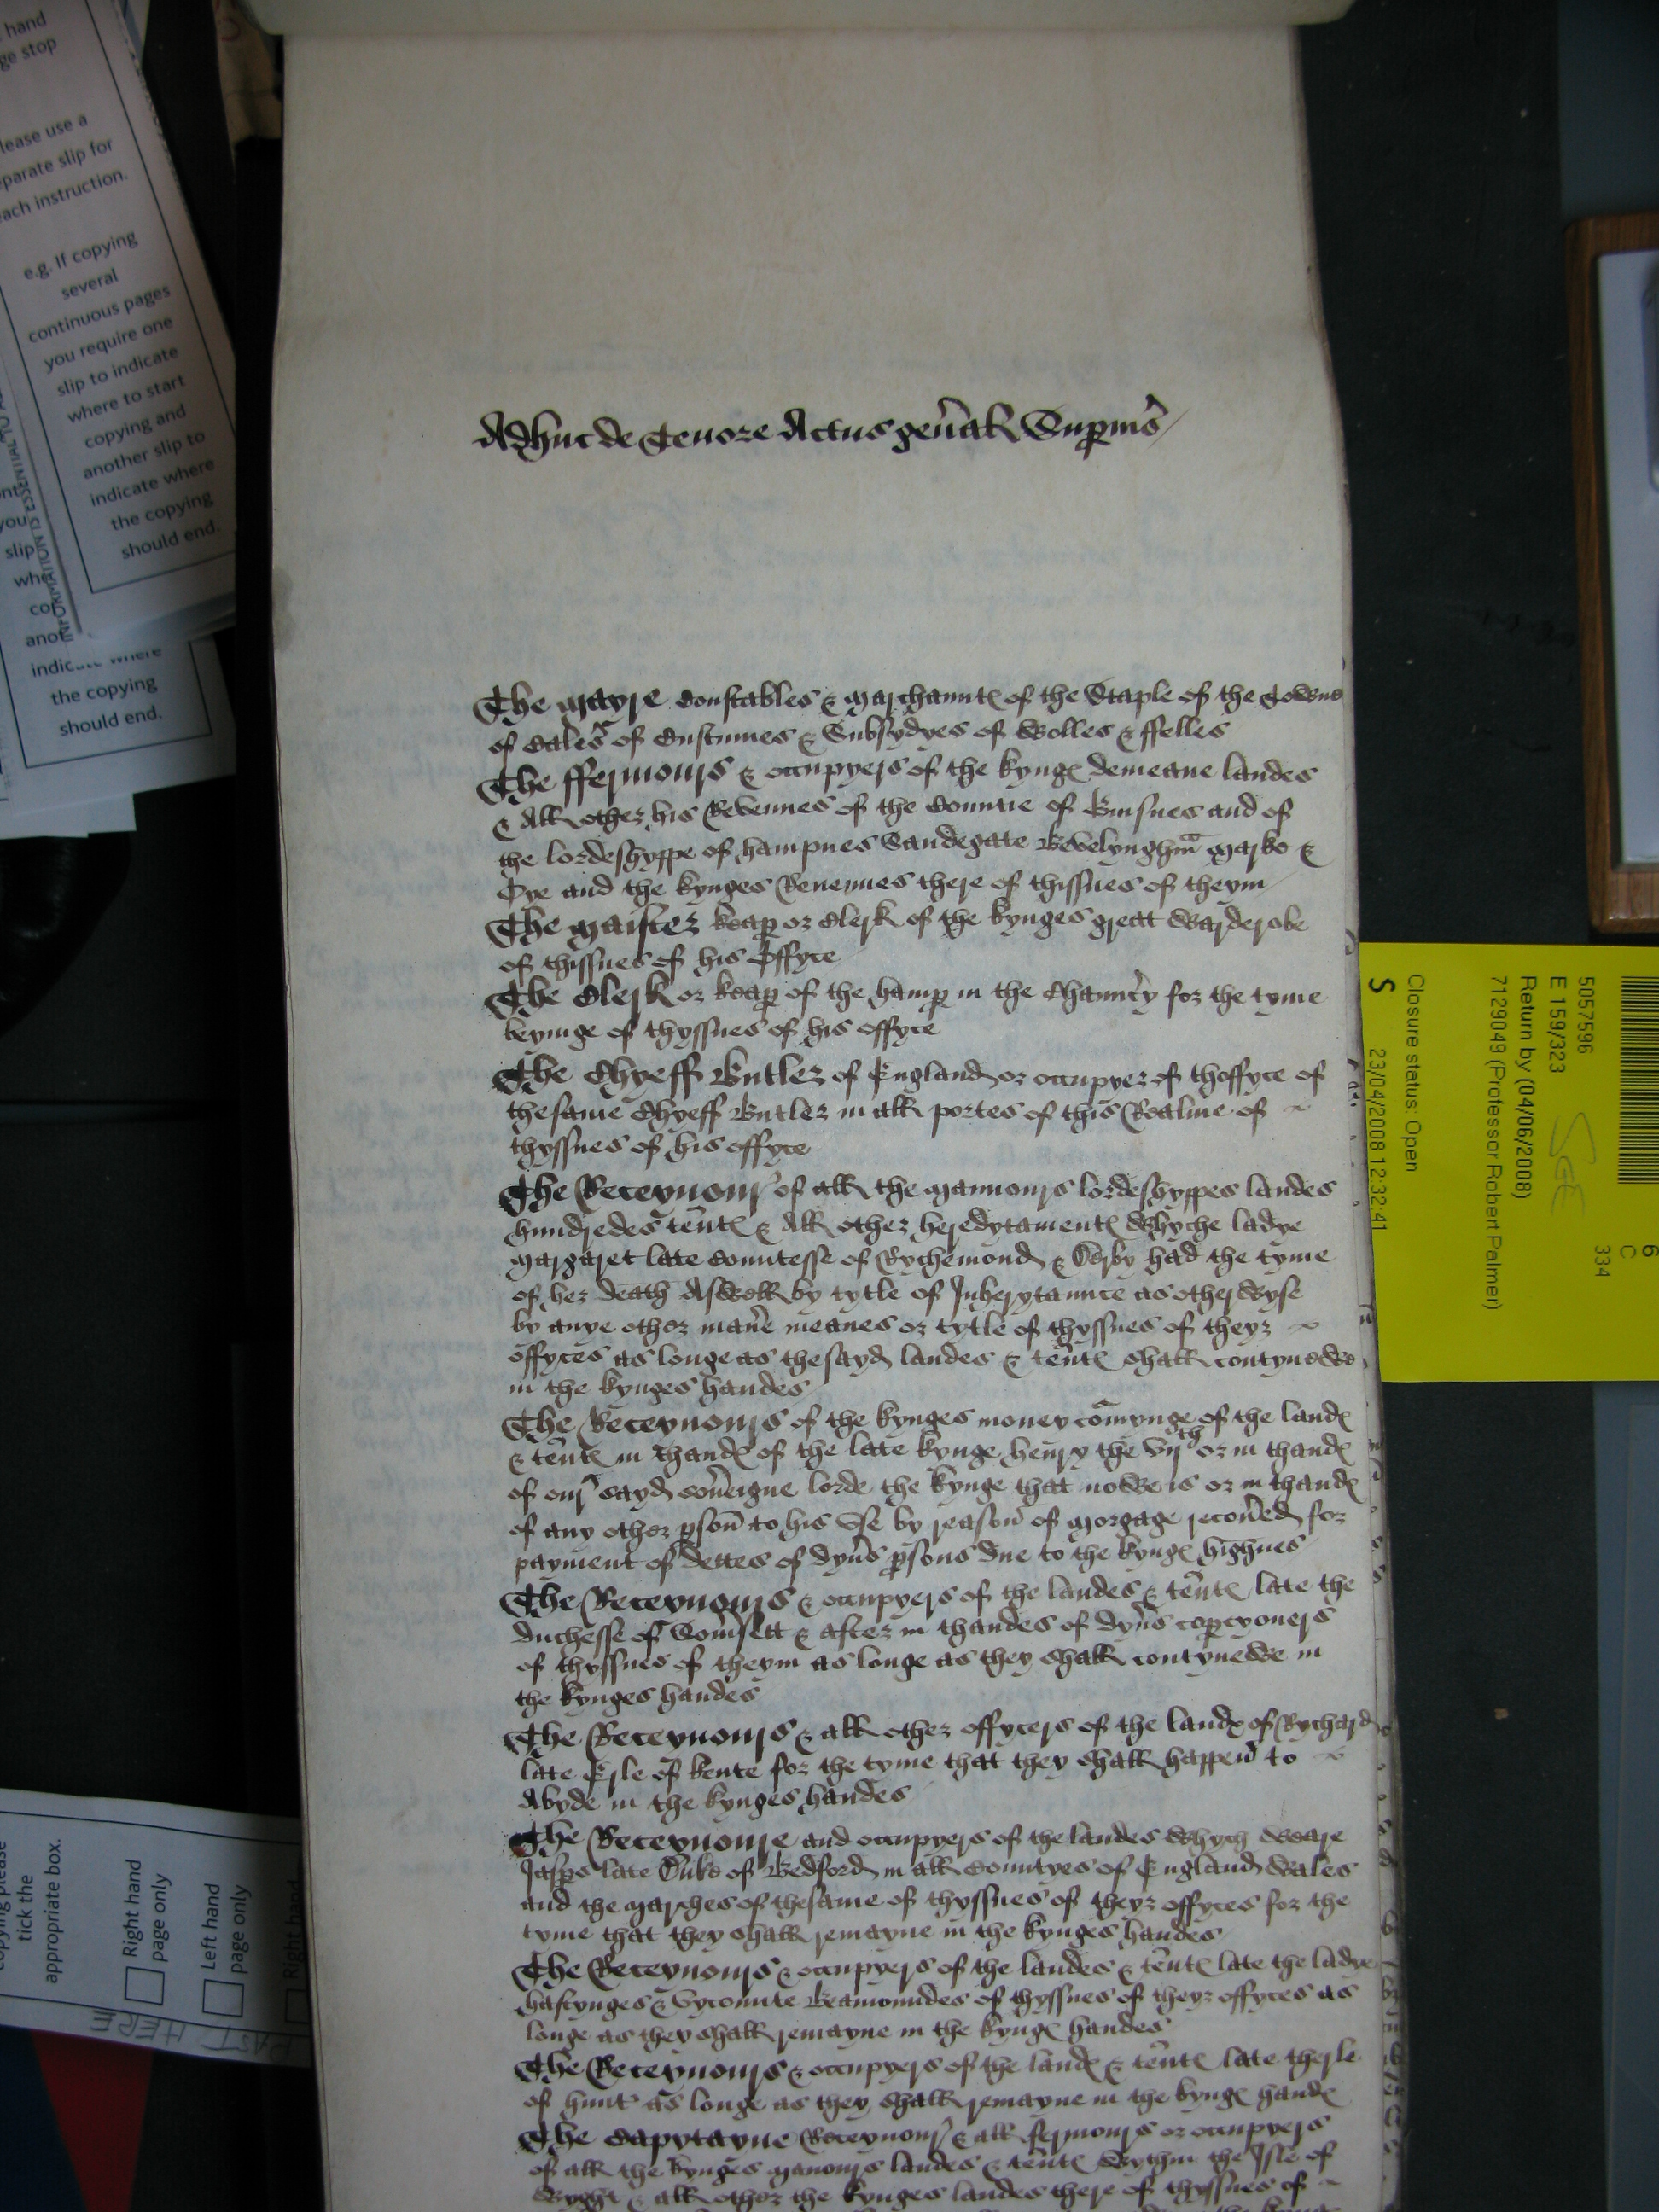 Adhuc de Tenore Actus gen̄al Sup̱ius
The Mayre Constables & Marchaunt℮ of the Staple of the Towne
of Cales of Custumes & Subsydyes of Wolles & ffelles
The ffermours & occupyers of the kyng℮ demeane landes
& All other his Revenues of the Countie of Guisnes and of
the lordeshyppe of hampnes Sandegate Marke &
Oye and the kynges Revenues there of thissues of theym
The Maister keap̱ or Clerk of the kynges great Warderobe
of thissues of his Offyce
The Clerk or keap̱ of the hamp̱ in the Chaunc̄y for the tyme
beynge of thyssues of his offyce
The Chyeff Butler of England or occupyer of thoffyce of
thesame Chyeff Butler in all portes of this Realme of
thyssues of his offyce
The Receyuour of all the Mannours lordeshyppes landes
hundredes ten̄t℮ & All other heredytament℮ Whyche ladye
Margaret late Countesse of Rychemond & Derby had the tyme
of her death AsWell by tytle of Inherytaunce as otherWyse
by anye other man̄e meanes or tytle of thyssues of theyr
offyces as longe as thesayd landes & ten̄t℮ shall contyneWe
in the kynges handes
The Receyuours of the kynges money comynge of the land℮
& ten̄t℮ in thand℮ of the late kynge henry the Vijth or in thand℮
of our sayd sov̄eigne lorde the kynge that noWe is or in thand℮
of any other p̱son to his Use by reason of Morgage recov̄ed for
payment of dettes of dyv̄s p̱sons due to the kyng℮ highnes
The Receyuours & occupyers of the landes & ten̄t℮ late the
duchesse of Som̄sett & after in thandes of dyv̄s cop̱cyoners
of thyssues of theym as longe as they shall contyneWe in
the kynges handes
The Receyuours & all other offycers of the land℮ of Rychard
late Erle of kente for the tyme that they shall happen to
Abyde in the kynges handes
The Receyuoure and occupyers of the landes Whych Weare
Jasp̱s late Duke of Bedford in all Countyes of England Wales
and the Marches of thesame of thyssues of theyr offyces for the
tyme that they shall remayne in the kynges handes
The Receyuours & occupyers of the landes & ten̄t℮ late the ladye
hastynges & Vycounte Beamoundes of thyssues of theyr offyces as
longe as they shall remayne in the kyng℮ handes
The Receyuours & occupyers of the land℮ & ten̄t℮ late therle
of hunt as longe as they shall remayne in the kyng℮ hand℮
The Capytayne Receyuour & all fermours or occupyers
of all the kynges Manours landes & ten̄t℮ Wythin the Isle of
Wyght & all other the kynges landes there of thyssues of
hand
ge stop
lease use a
parate slip for
ach instruction.
e.g. If copying
several
continuous pages
you require one
slip to indicate
where to start
copying and
another slip to
indicate where
the copying
should end.
INFORMATION IS ESSENTIAL TO
you
slip
anot
indicate where
the copying
should end.
copying please
tick the
appropriate box.
Right hand
page only
Left hand
page only
Right hand
FAST HERE
5057596
E 159/323
Return by (04/06/2008)
7129049 (Professor Robert Palmer)
Closure status: Open
S 23/04/2008 12:32:41
334
C
6